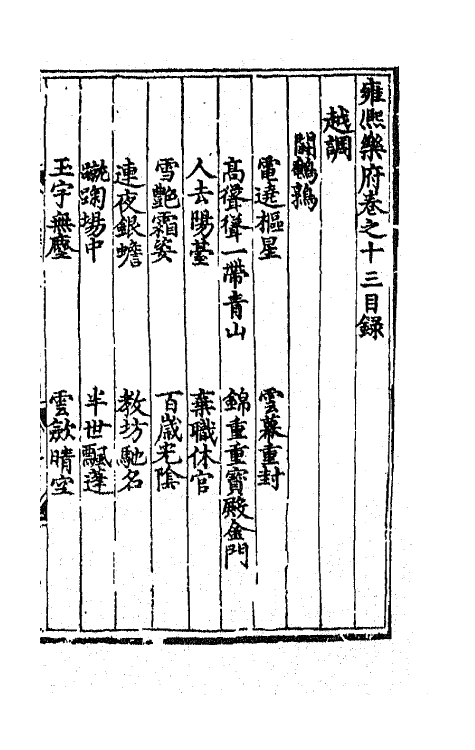 雍熈樂府卷之十三目録
越調
鬪鵪鶉
電遶樞星 雲幕重封
高聳聳一帶青山 錦重重寳殿金門
人去陽臺 棄職休官
雪艷霜姿 百歲光陰
連夜銀蟾 教坊馳名
蹴踘場中 半世飄蓬
玉宇無塵 雲歛晴空